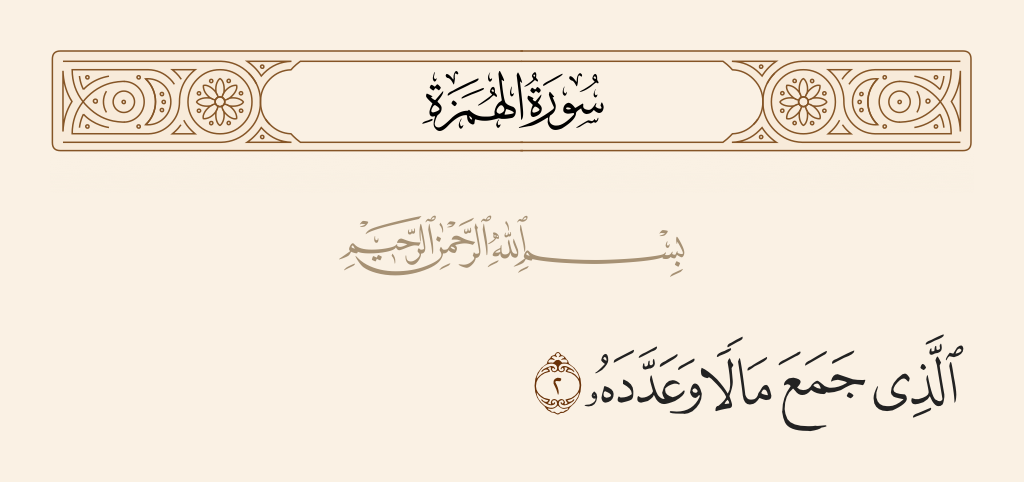 سُورَةُ الهُمَزَةِ
بِسْمِ ٱللَّهِ ٱلرَّحْمَٰنِ ٱلرَّحِيمِ
ٱلَّذِى جَمَعَ مَالًا وَعَدَّدَهُۥ ٢